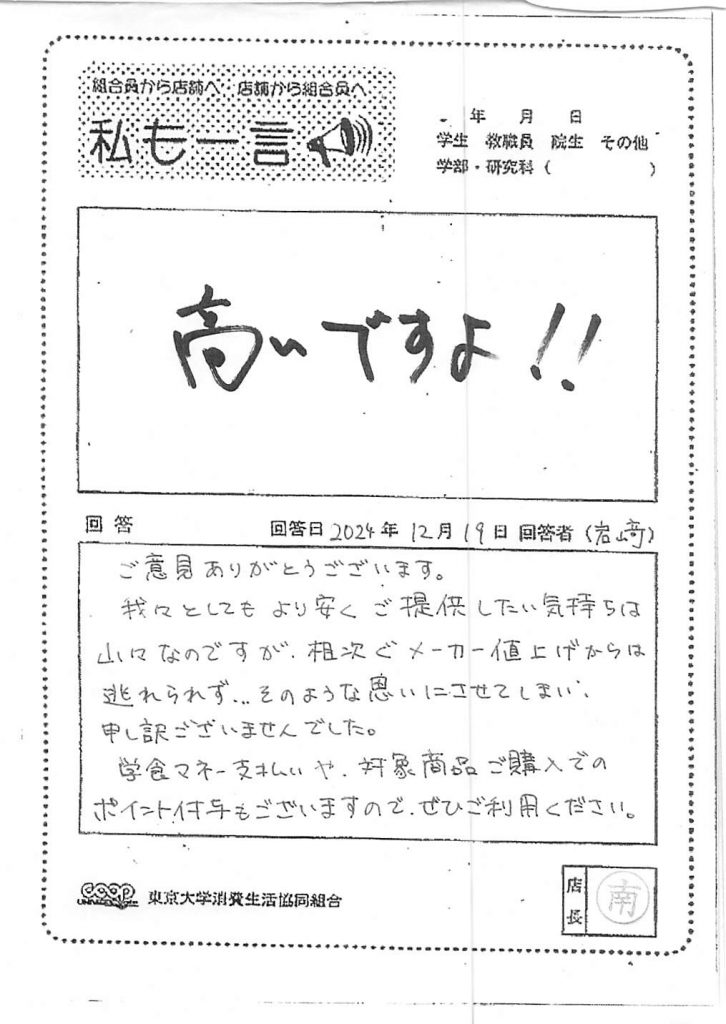 組合員から店舗へ 店舗から組合員へ
私も一言
年 月 日
学生 教職員 院生 その他
学部・研究科( )
高いですよ!!
回答 回答日 2024年 12月 19日 回答者(岩崎)
ご意見ありがとうございます。
我々としてもより安くご提供したい気持ちは
山々なのですが、相次ぐメーカー値上げからは
逃れられず...そのような思いにさせてしまい、
申し訳ございませんでした。
学食マネー支払いや、対象商品ご購入での
ポイント付与もございますので、ぜひご利用ください。
coop 東京大学消費生活協同組合
店長 南